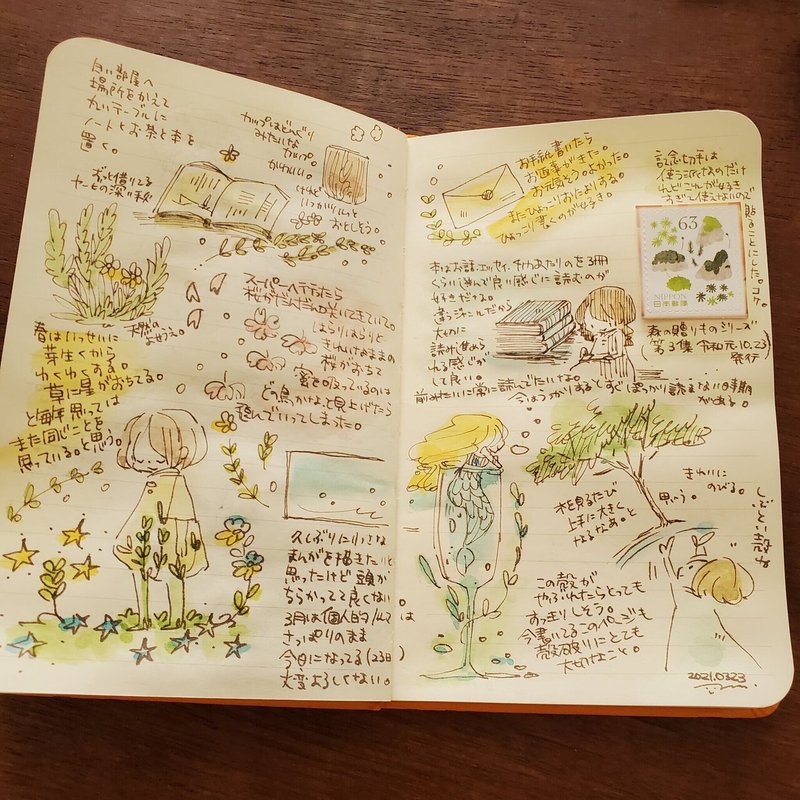 良い部屋へ
場所をかえて
丸いテーブルに
ノートとお茶と本を
置く。
ずっと借りてる
カップはどんぐり
みたいな
カップ。
かわいい。
けれど
いつかツルッと
おとしそう。
春はいっせいに
芽生くから
わくわくする。
草に星がおちてる。
と毎年思っては
また同じことを
思っている。と思う。
天然の
スーパーへ行ったら
桜がだんだん咲いてきていて。
はらりはらりと
きれいなままの
桜がおちて
蜜を吸っているのは
どの鳥かなぁと見上げたら
飛んでいってしまった。
久しぶりに小さな
まんがを描きたいと
思ったけど頭が
ちらかってて良くない。
3月は個人的には
さっぱりのまま
今日になってる(23日)
大変よろしくない。
お手紙書いたら
お返事がきた。
お元気そうでよかった。
またひょっこりおたよりする。
ひょっこり書くのが好き。
記念切手は
使う派なのだけ
れどこれが好き
すぎて使えないので
貼ることにした。コケ。
63
NIPPON
日本郵便
森の贈りものシリーズ
(第3集 令和元.10.23)
発行
本はお話、エッセイ、
くらい進んで良い感じに読むのが
好きだな。
大切に
読み進め
られる感じが
して良い。
前みたいに常に読んでたいな。
今はうっかりするとすぐぽっかり読まない時期
がある。
木を見るたび
上手に大きく
なるなあ。と
思う。
きれいに
のびる。
しぶとい殻な
この殻が
やぶれたらとっても
すっきりしそう。
今書いてるこのページも
殻破りにとても
大切なこと。
2021.0323